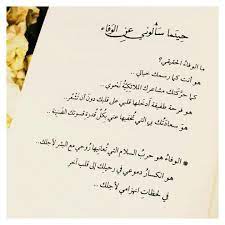 حينما سألوني عن الوفاء
ما الوفاء الحقيقي؟
هو أنت كما رسمك خيالي ..
كما حرّكتك مشاعرك الملائكيّة لنحوي ..
هو فرحة طفيفة أدخلها قلبي على قلبك دون أن تشعر ..
هو سعادتك بي التي تُخفيها عني بكلّ قدرة قسوتك الظنية ..
● الوفاء هو حربُ السلام التي تُعانيها روحي مع البشر لأجلك ..
هو انكسارُ دموعي في رحيلك إلى قلب آخر
في لحظات انهزامي لأجلك ..